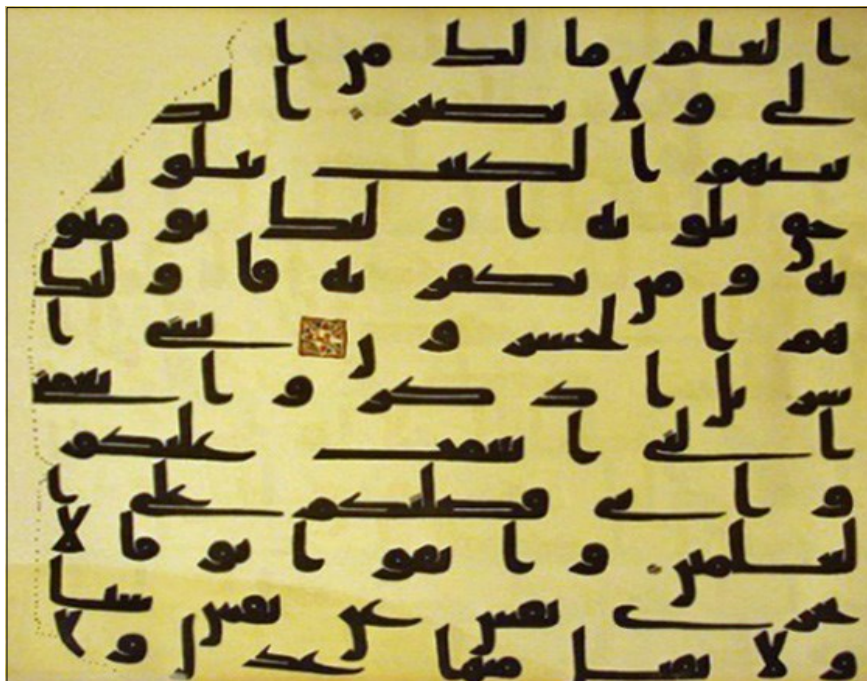 العلم ما لك من ا
لى ولا نصير الذ
ينهم الكتب يتلو ن
حق تلو ته اولئك يو منو
به و من يكفر به فاولئك
هم الخسر و ن يبنى ا
سر يل اذ كر وا نعمتى
التى انعمت عليكم
وانى فضلتكم على ا
لعلمين واتقوا يو ما لا
تجزى نفس عن نفس شيا
ولا يقبل منها عدل ولا